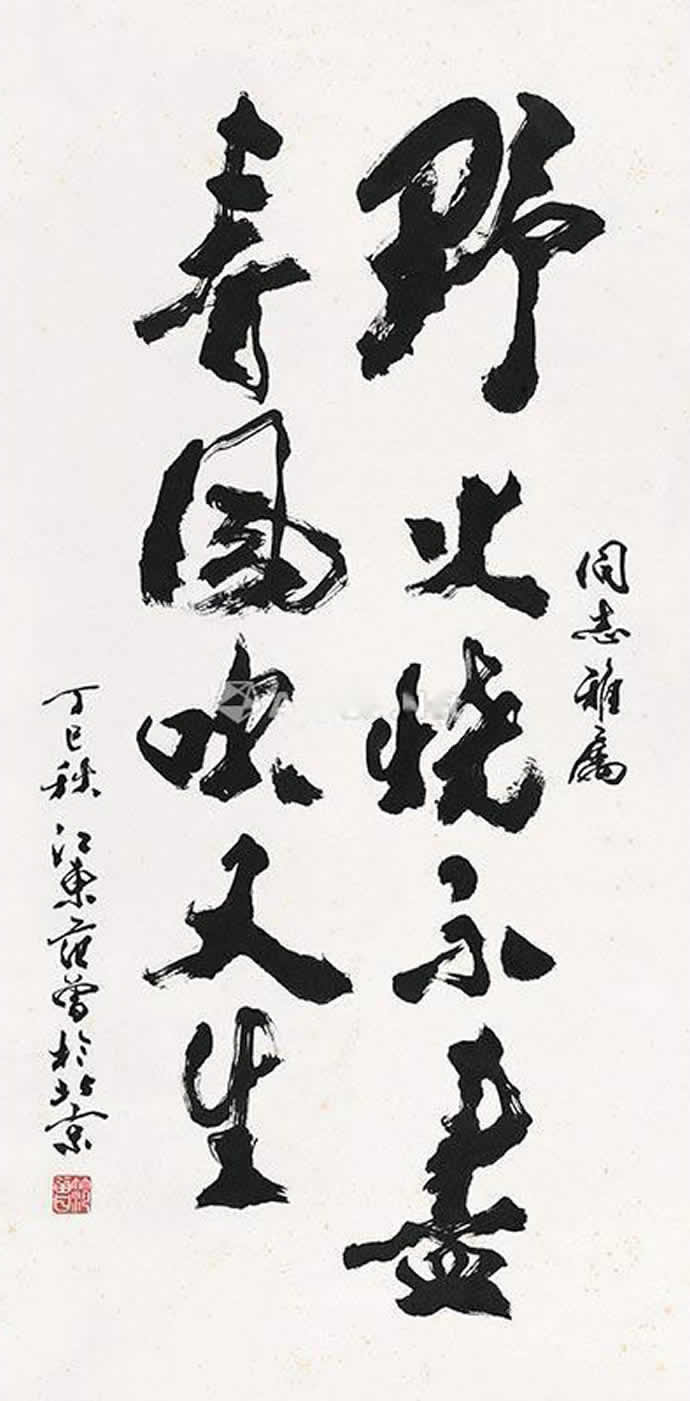 同志雅属
野火烧不尽
春风吹又生
丁巳秋江东范曾於北京